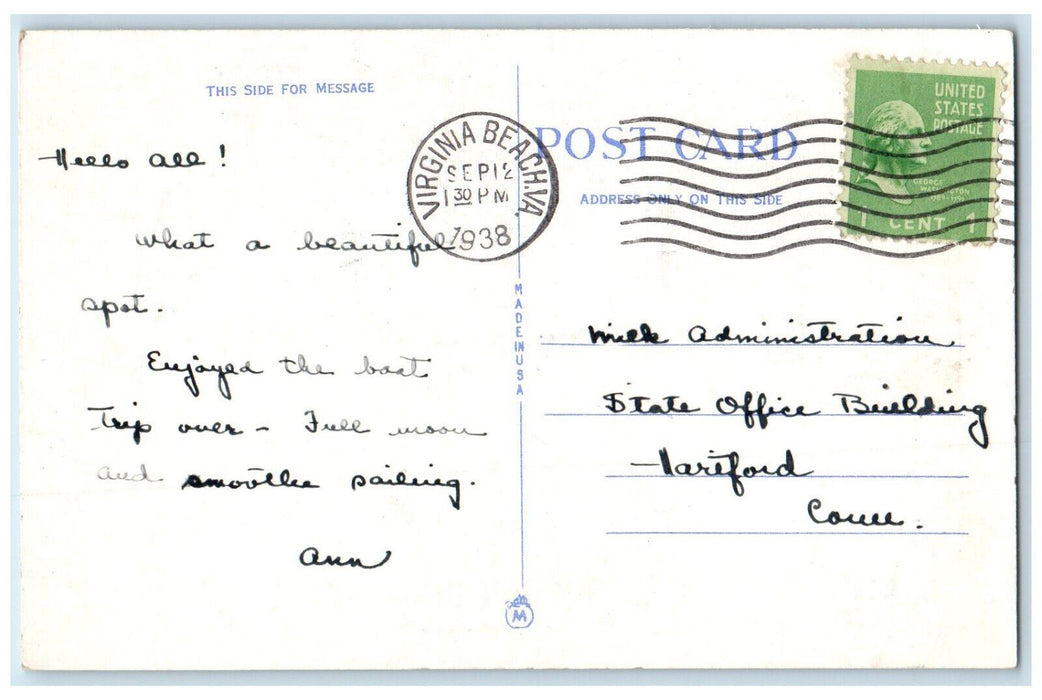 THIS SIDE FOR MESSAGE
Hello all!
What a beautiful
spot.
Enjoyed the boat
trip over - Full moon
and smoothe sailing.
Ann
VIRGINIA BEACH, VA
SEP 12
1 30 PM
1938
POST CARD
ADDRESS ONLY ON THIS SIDE
MADE IN USA
UNITED
STATES
POSTAGE
GEORGE
WASHINGTON
1789-1797
1 CENT 1
Milk Administration
State Office Building
Hartford
Conn.